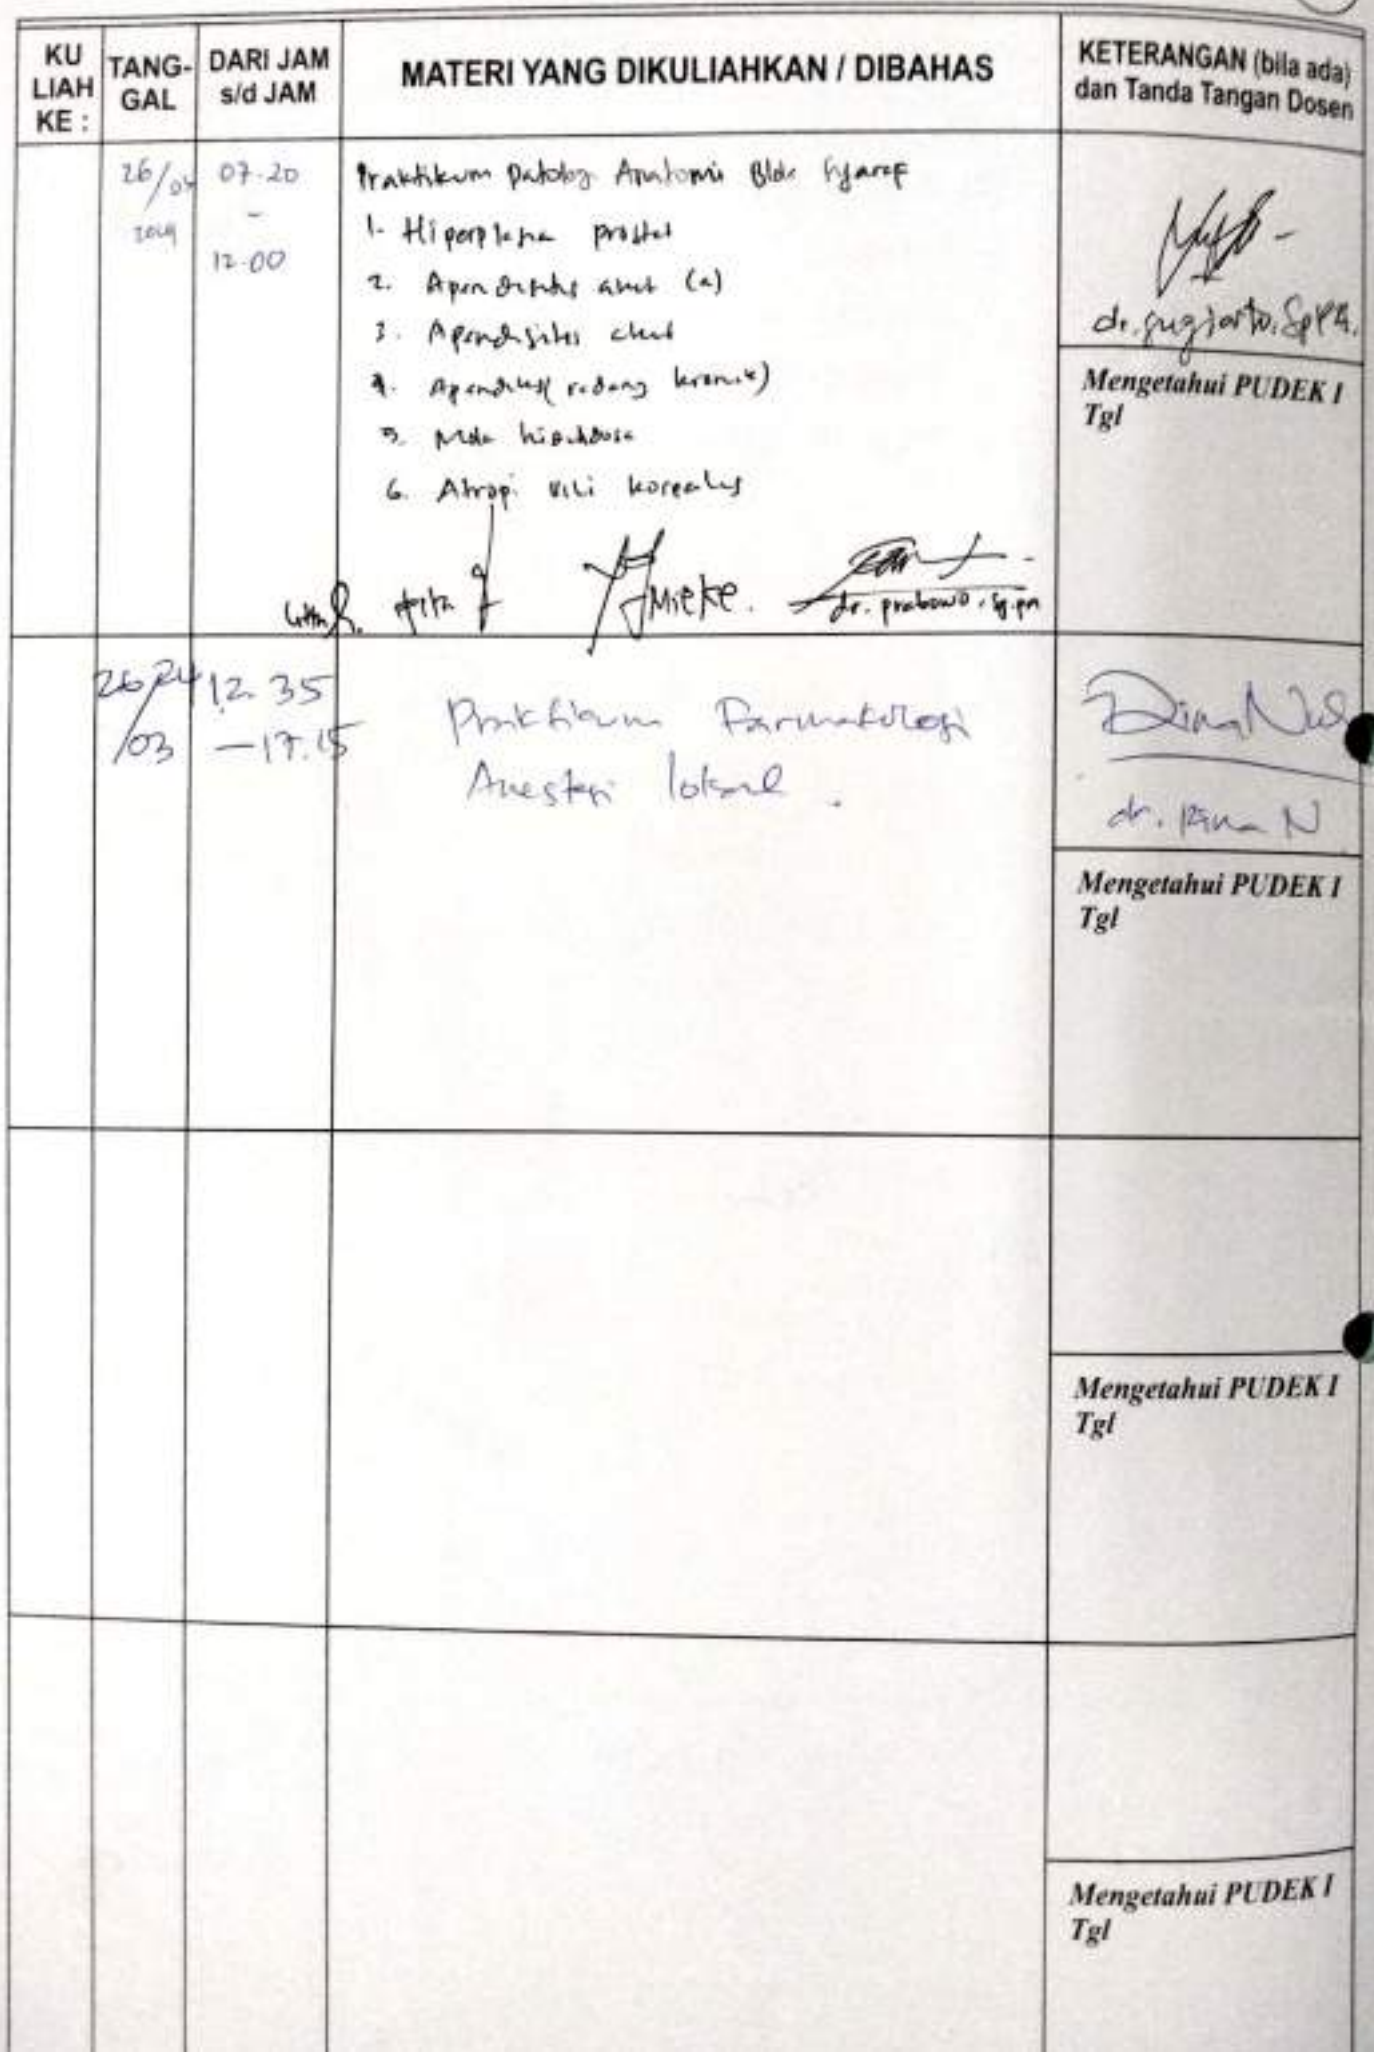 KU
LIAH
KE :
TANG-
GAL
DARI JAM
s/d JAM
MATERI YANG DIKULIAHKAN / DIBAHAS
KETERANGAN (bila ada)
dan Tanda Tangan Dosen
26/
07.20
-
12.00
Praktikum Patologi Anatomi
1. Hiperplasia prostat
2. akut (a)
3. Apendisitis akut
4. radang kronik)
5. Mola
6. Atropi vili korealis
Mieke.
dr. prabowo, Sp.PA
dr. Sugiarto, SpPA.
Mengetahui PUDEK I
Tgl
26
/03
12.35
-17.15
Praktikum Farmakologi
Anestesi lokal .
dr. N
Mengetahui PUDEK I
Tgl
Mengetahui PUDEK I
Tgl
Mengetahui PUDEK I
Tgl